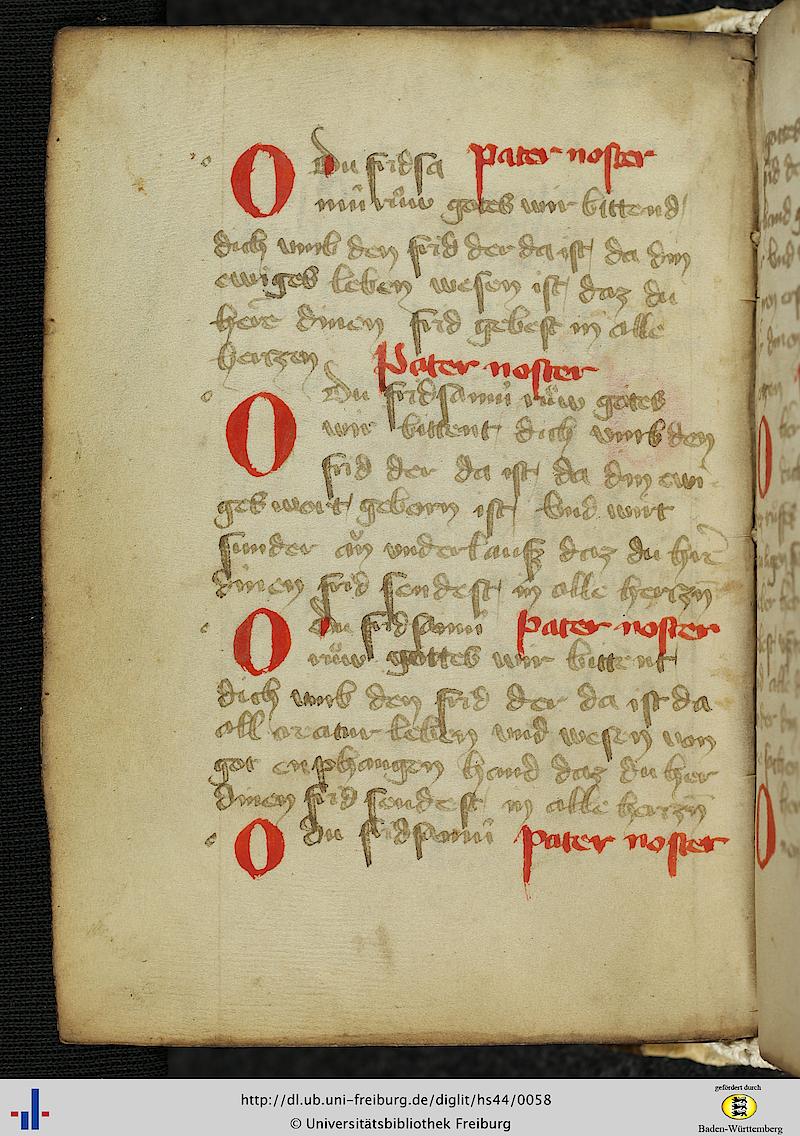 O du fridsa Pater noster
mü růw gotes wir bittend
dich umb den frid der da ist da din
ewiges leben wesen ist daz du
here dinen frid gebest in alle
hertzen Pater noster
O Du fridsamü růw gotes
wir bittent dich umb den
frid der da ist da din ewi
ges wort geborn ist Vnd wirt
sunder an vnderlausz daz du hire
dinen frid sendest in alle hertzn̄
O du fridsamü pater noster
růw gottes wir bittent
dich umb den frid der da ist da
all creatur leben vnd wesen von
got enphangen hand daz du her
dinen frid sendest in alle hertzn̄
O du fridsamü pater noster
http://dl.ub.uni-freiburg.de/diglit/hs44/0058
© Universitätsbibliothek Freiburg
gefördert durch
Baden-Württemberg